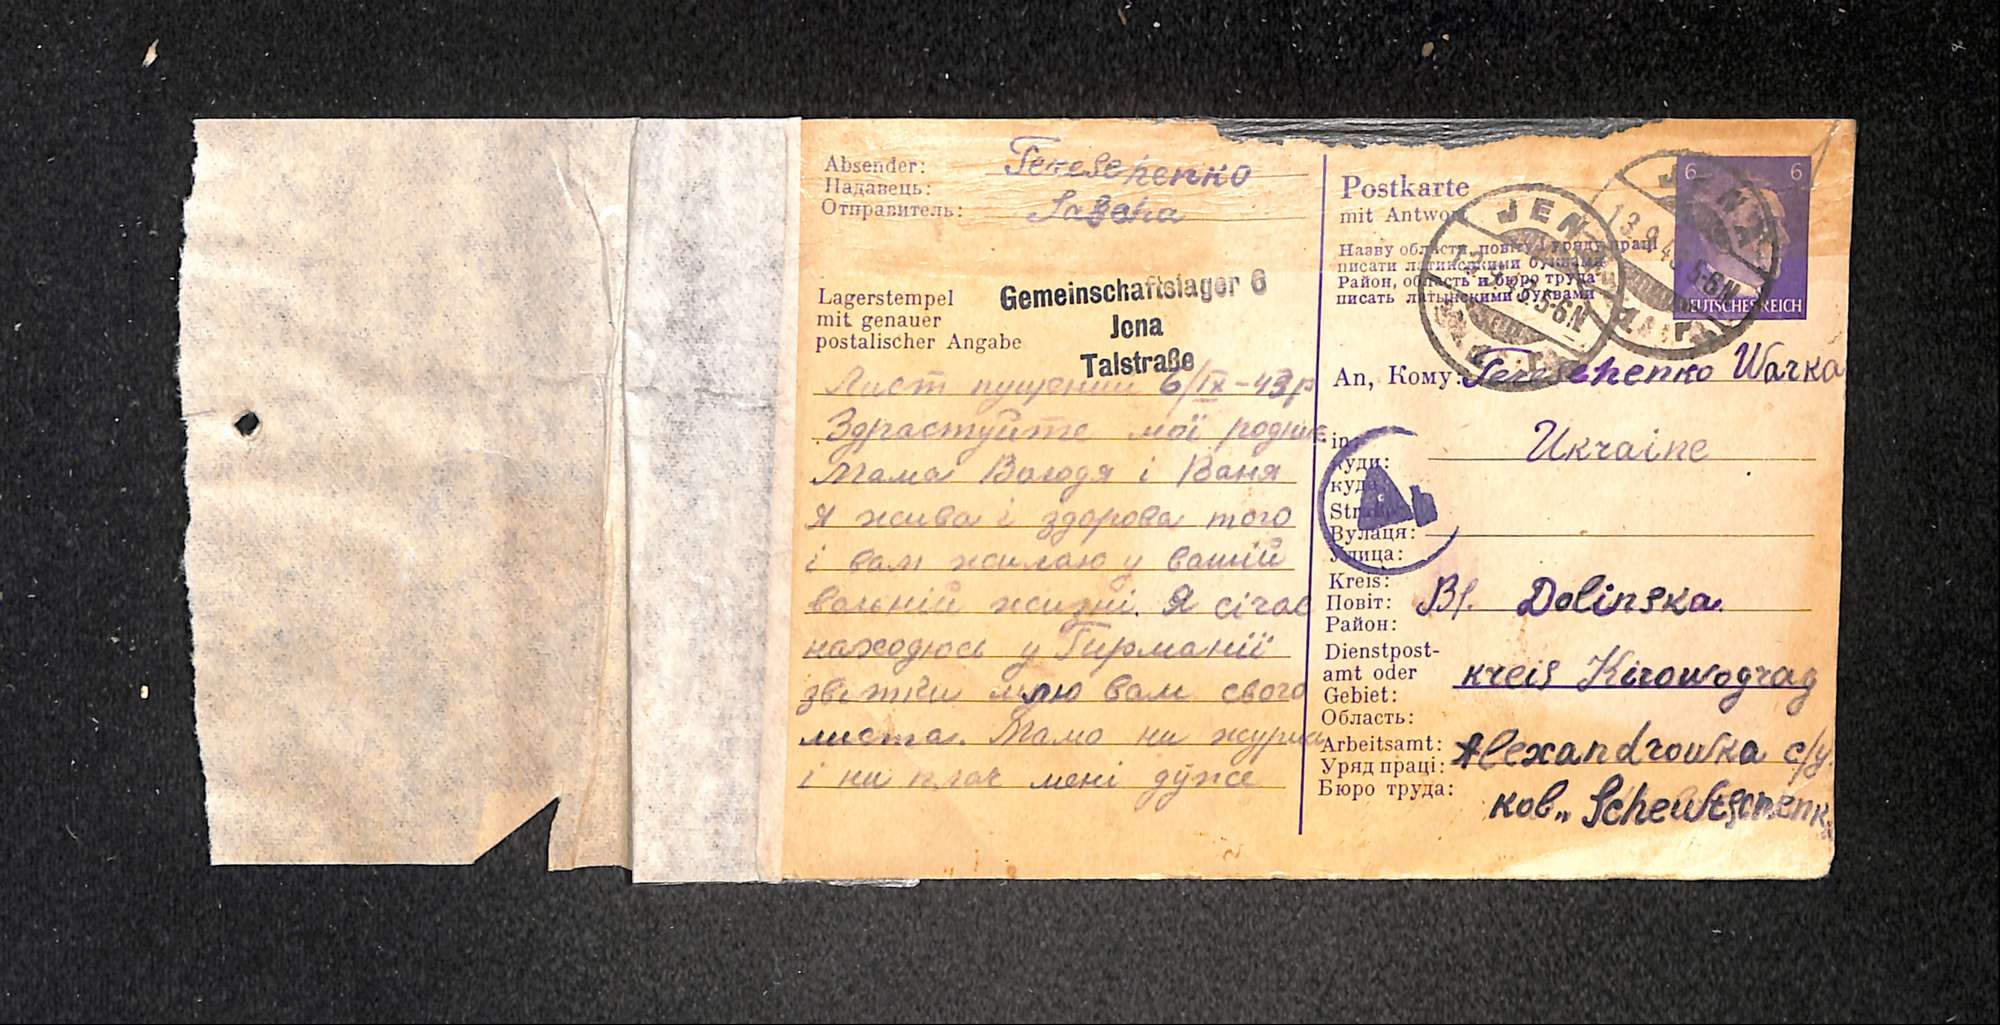 Absender: Tereschenko
Надавець:
Отправитель: Sascha
Lagerstempel
mit genauer
postalischer Angabe
Gemeinschaftslager 6
Jena
Talstraße
Лист пущений 6/IX-43р
Здрастуйте мої родние
Мама Володя і Ваня
Я жива і здорова того
і вам жилаю у вашій
вольній жизні. Я січас
находюсь у Гирманії
звітки шлю вам свого
листа. Мамо ни журись
і ни плач мені дуже
Postkarte
mit Antwort
Назву области, повіту і уряду праці
писати латинськими буквами
Район, область и бюро труда
писать латынскими буквами
6 6
DEUTSCHES REICH
JENA
13.9.43 5-6.N
JENA
5-6.N
An, Кому: Tereschenko Warka
in:
куди:
куда
Ukraine
Straße
Вулаця:
Улица:
Ab
Kreis:
Повіт: Bf. Dolinska
Район:
Dienstpost-
amt oder
Gebiet: kreis Kirowograd
Область:
Arbeitsamt: Alexandrowka с/у
Уряд праці:
Бюро труда: ков„ Schewtschenk